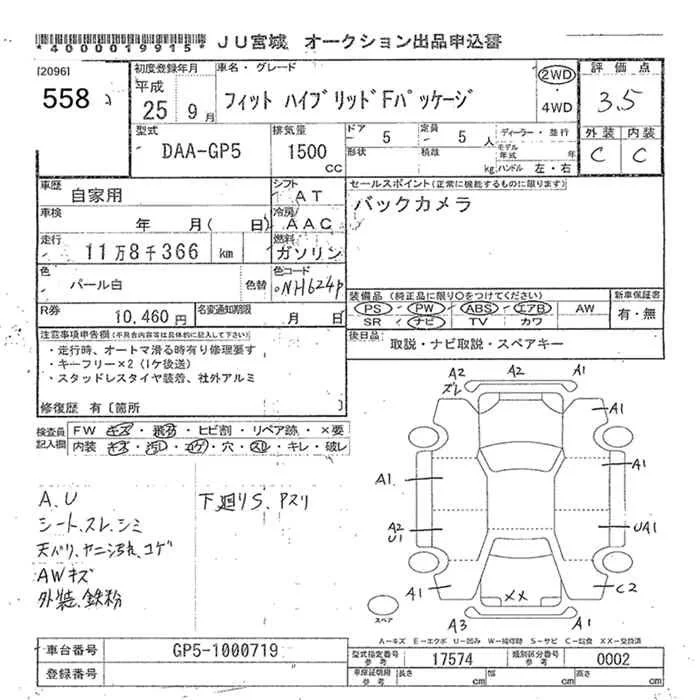 *4000019915* JU宮城 オークション出品申込書
[2096]
558
初度登録年月 平成 25年 9月
車名・グレード
フィット ハイブリッドFパッケージ
2WD・4WD
評価点
3.5
外装 内装
C C
型式
DAA-GP5
排気量
1500 CC
ドア 5
形状
定員 5人
積雑 kg
ディーラー・並行
モデル年式 年
ハンドル 左・右
車歴
自家用
シフト AT
車検 年 月( 日)
冷房 AAC
走行 11万8千366 km
燃料 ガソリン
色 パール白 色替
色コード NH624P
R券 10,460円
名変通知期限 月 日
セールスポイント(正常に機能するものに限ります)
バックカメラ
装備品(純正品に限り○をつけてください)
PS・PW・ABS・エアB・AW
SR・ナビ・TV・カワ
新車保証書
有・無
後日品
取説・ナビ取説・スペアキー
注意事項申告欄(不具合内容等は具体的に記入して下さい)
・走行時、オートマ滑る時有り修理要す
・キーフリー×2(1ケ後送)
・スタッドレスタイヤ装着、社外アルミ
修復歴 有〔箇所 〕
検査員記入欄
FW キズ・飛石・ヒビ割・リペア跡・×要
内装 キズ・汚レ・コゲ・穴・スレ・キレ・破レ
A、U
シート、スレ、シミ
天バリ、ヤニ汚れ、コゲ
AWキズ
外装、鉄粉
下廻りS、Pスリ
A2 A2 A1
ズレ
A1
A1 A1
A2
U1
UA1
A1 ×× C2
A3 A1
スペア
A-キズ E-エクボ U-凹み W-補修跡 S-サビ C-腐食 XX-交換済
車台番号 GP5-1000719
登録番号
型式指定番号 参考 17574
類別区分番号 参考 0002
車庫証明用 参考 長さ cm 幅 cm 高さ cm